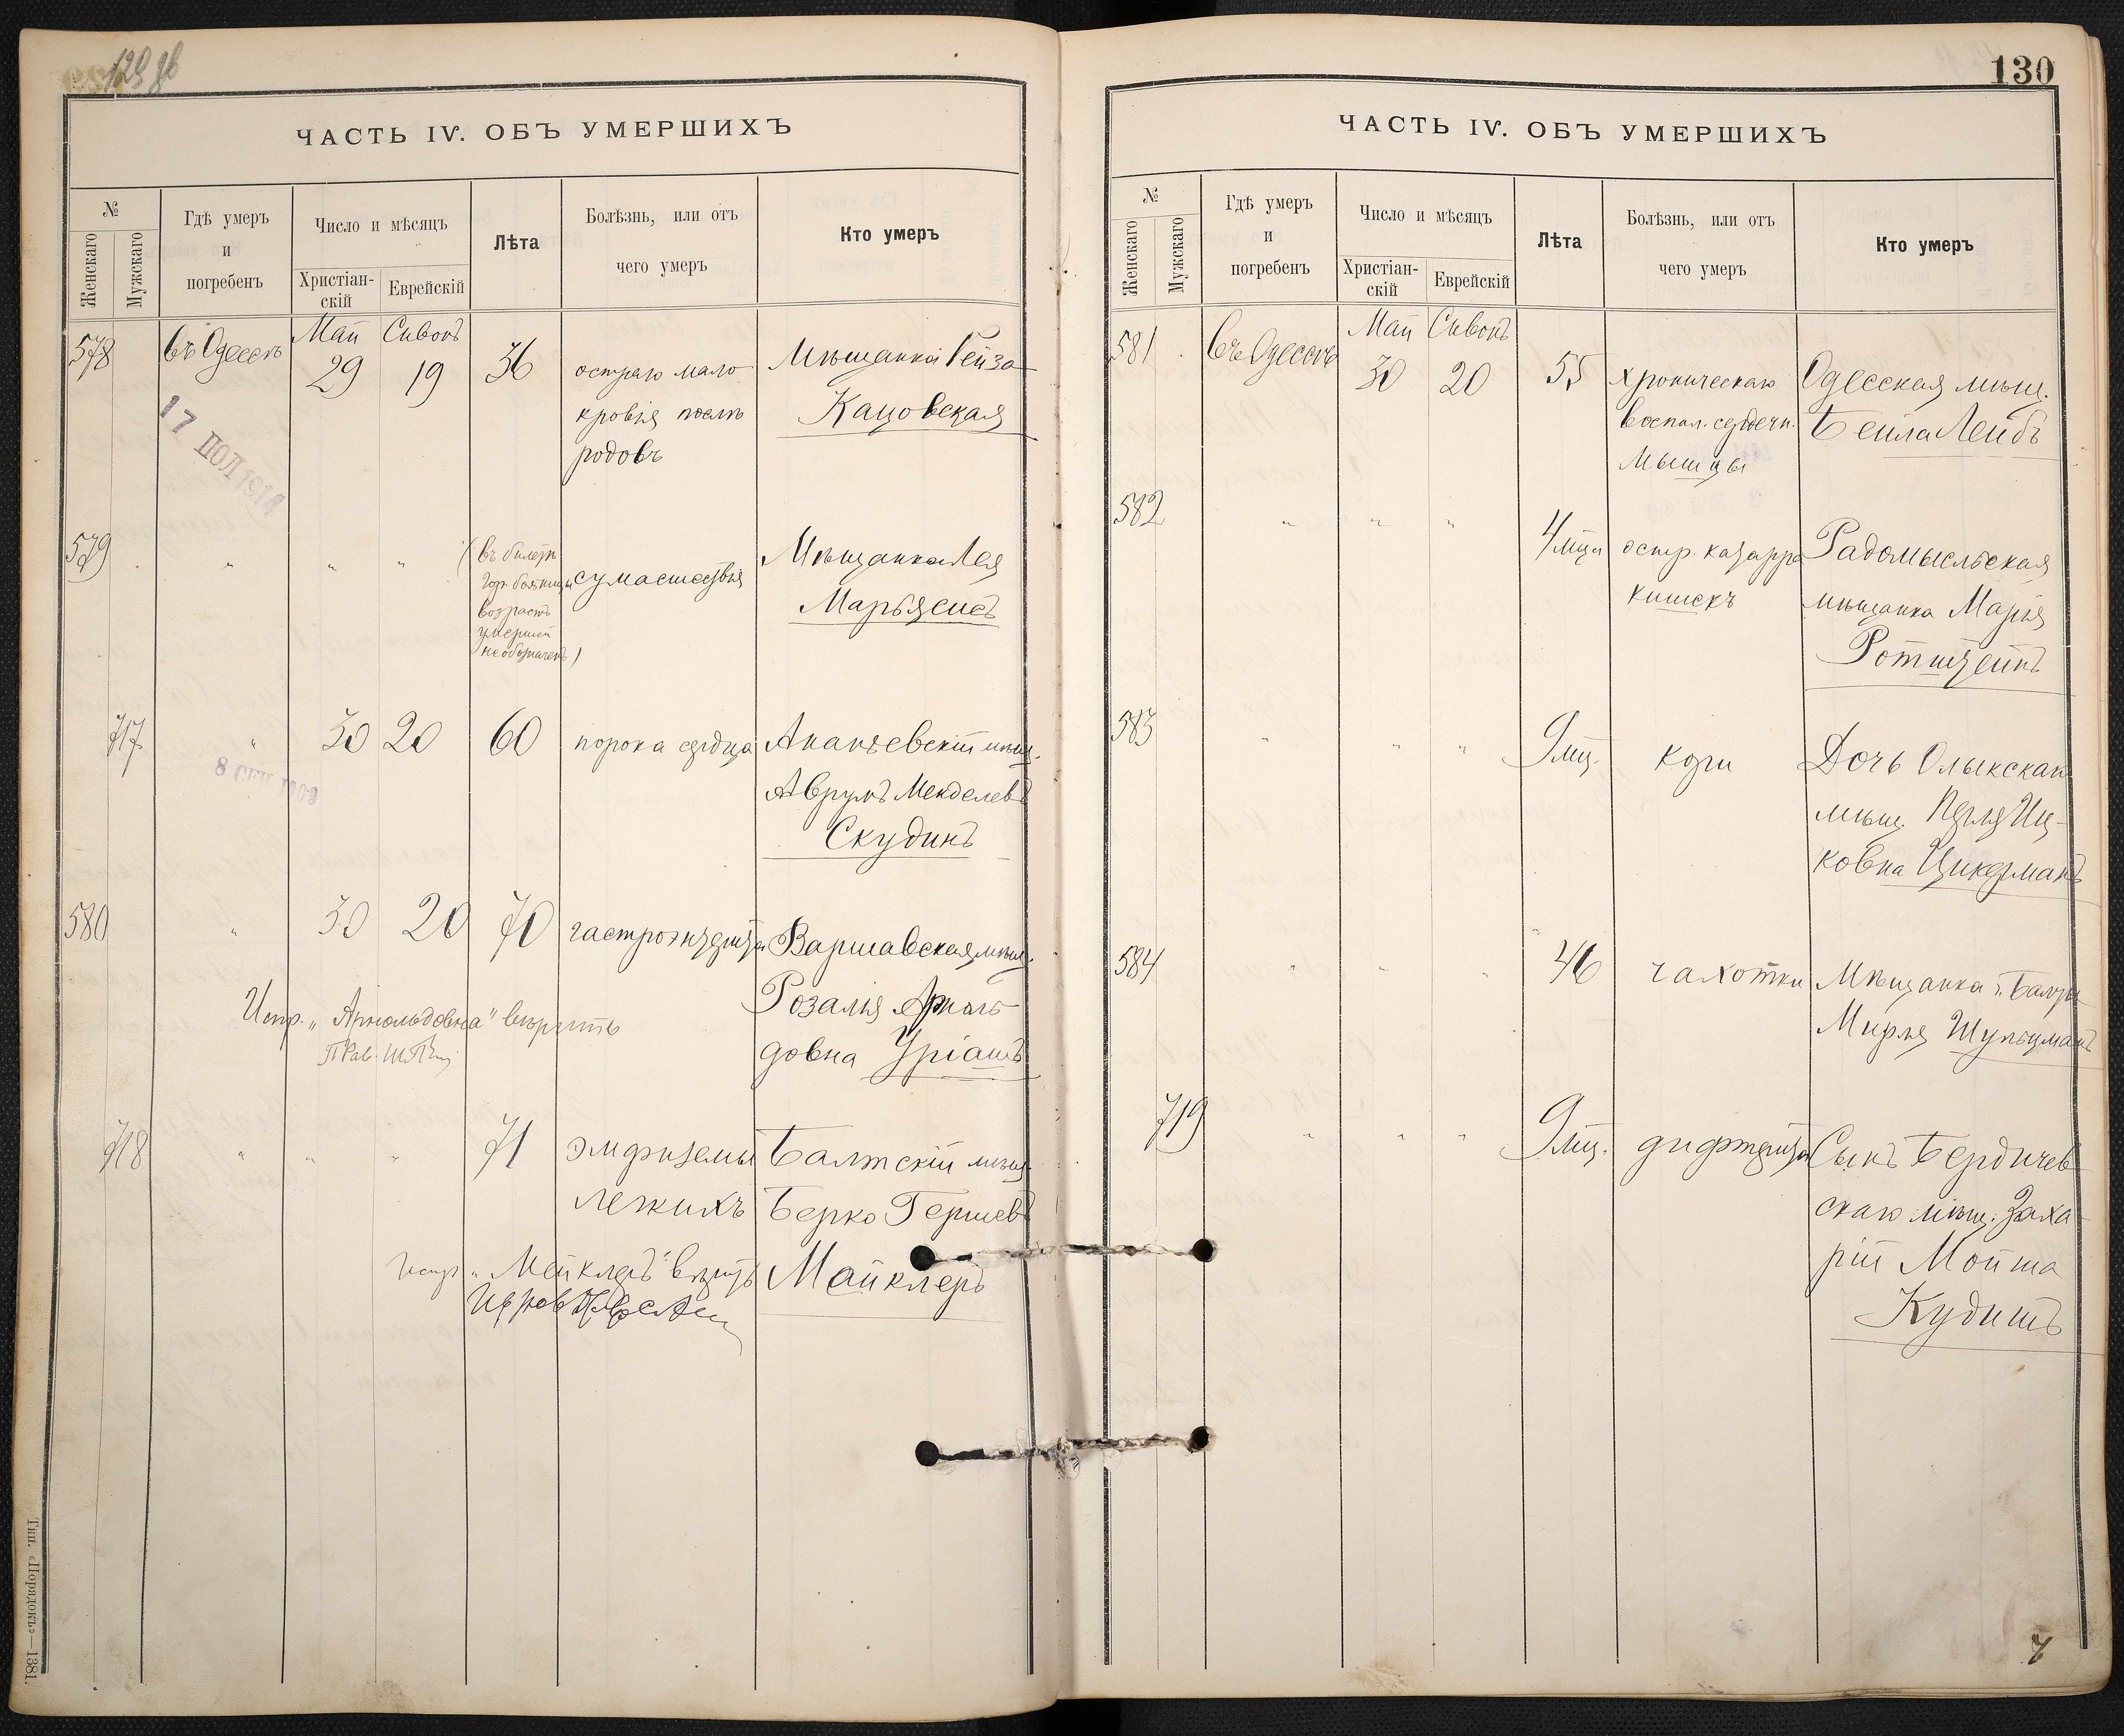 129 об
ЧАСТЬ IV. ОБЪ УМЕРШИХЪ
№
Женскаго
Мужскаго
Гдѣ умеръ
и
погребенъ
Число и мѣсяцъ
Христіан-
скій
Еврейскій
Лѣта
Болѣзнь, или отъ
чего умеръ
Кто умеръ
Маи Сивонъ
578 въ Одессѣ 29 19 36 остраго мало-
кровія послѣ
родовъ
Мѣщанка Гейза
Кацовская
17 ІЮЛ 191
579 " " " (въ билетѣ
гор. больницы
возрастъ
умершей
не обозначенъ)
сумасшествія
Мѣщанка Лея
Марьясисъ
717 " 30 20 60 порока сердца Ананьевскій мѣщ.
Аврумъ Менделевъ
Скудинъ
8 СЕН
580 " 30 20 70 гастроэнтерита Варшавская мѣщ.
Розалія Арноль-
довна Уріашъ
Испр. "Арнольдовна" вѣрить
718 " " " 71 эмфиземы
легкихъ
Балтскій мѣщ.
Берко Гершевъ
Майклеръ
испр. "Мейклеръ" вѣрить
Тип. «Порядокъ»—1381.
130
ЧАСТЬ IV. ОБЪ УМЕРШИХЪ
№
Женскаго
Мужскаго
Гдѣ умеръ
и
погребенъ
Число и мѣсяцъ
Христіан-
скій
Еврейскій
Лѣта
Болѣзнь, или отъ
чего умеръ
Кто умеръ
Маи Сивонъ
581 въ Одессѣ 30 20 55 хроническаго
воспал. сердечн.
мышцы
Одесская мѣщ.
Бейла Лейбъ
582 " " " 4 мѣца остр. катарра
кишекъ
Радомысльская
мѣщанка Марія
Ротштейнъ
583 " " " 9 мц. кори Дочь Олыкскаго
мѣщ. Перля Иц-
ковна Цикерманъ
584 " " " 46 чахотки Мѣщанка г. Балты
Мирля Шульцманъ
719 " " " 9 мц. дифтерита Сынъ Бердичев-
скаго мѣщ. Заха-
рій Мойша
Кудишъ